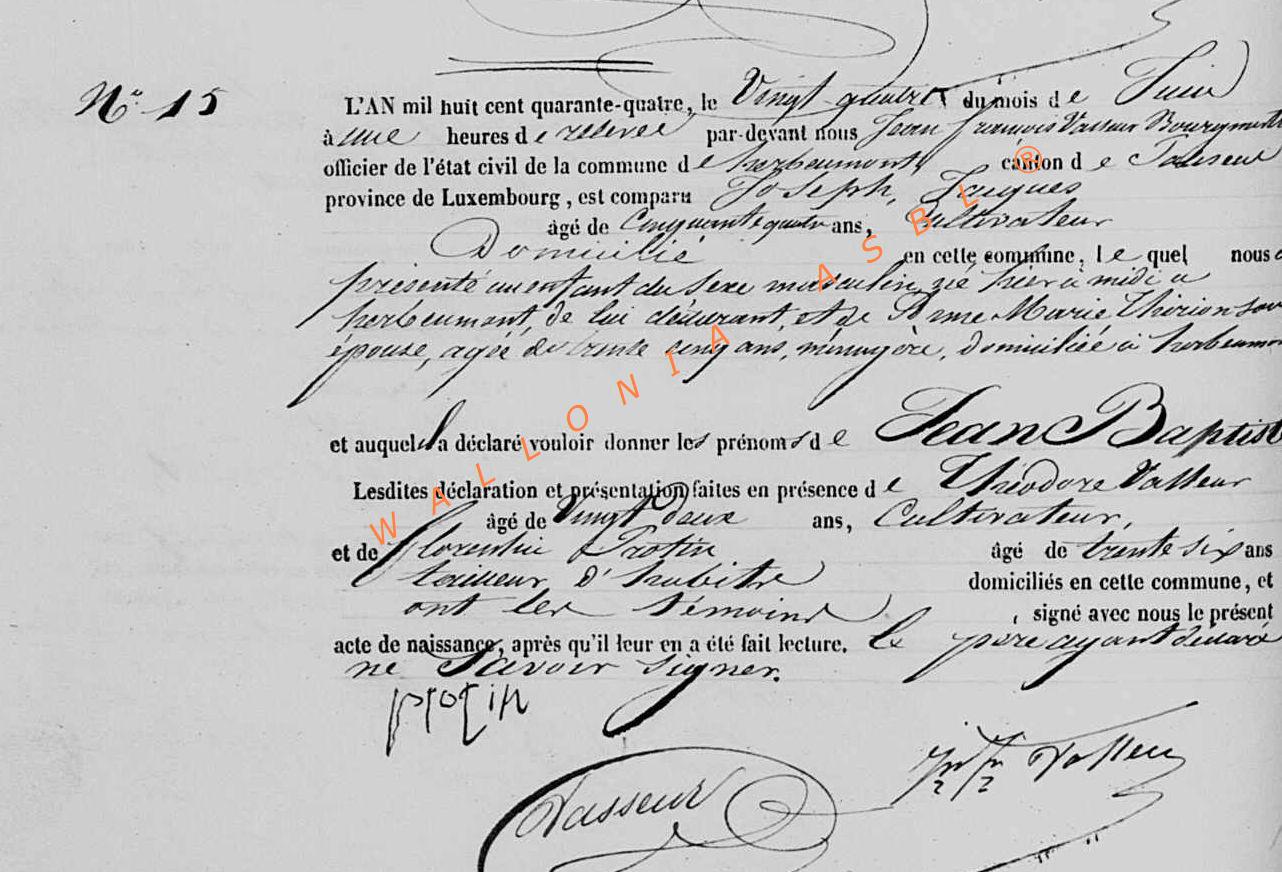 N° 15
L'AN mil huit cent quarante-quatre, le Vingt quatre du mois de Juin
à une heures de relevée par-devant nous Jean françois Vasseur Bourgmestr
officier de l'état civil de la commune de herbeumont, canton de Paliseul
province de Luxembourg, est comparu Joseph, Jacques
âgé de Cinquante quatre ans, Cultivateur
Domicilié en cette commune, le quel nous a
présenté un enfant du sexe masculin, né hier à midi a
herbeumont, de lui déclarant, et de Anne Marie Thirion son
épouse, agée de trente cinq ans, ménagère, domiciliée à herbeumon
et auquel il a déclaré vouloir donner les prénoms de Jean Baptist
Lesdites déclaration et présentation faites en présence de Théodore Vasseur
âgé de Vingt deux ans, Cultivateur,
et de florentin Protin âgé de trente six ans
tailleur d'habits domiciliés en cette commune, et
ont les témoins, signé avec nous le présent
acte de naissance, après qu'il leur en a été fait lecture. Le pere ayant déclaré
ne Savoir signer.
protin
Vasseur
Vasseur
WALLONIA ASBL ®